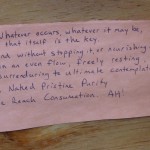 Whatever occurs, whatever it may be,
that itself is the key.
without stopping it or nourishing
an even flow, freely resting
surrendering to ultimate contemplat
Naked Pristine Purity
Reach Consummation. AH!